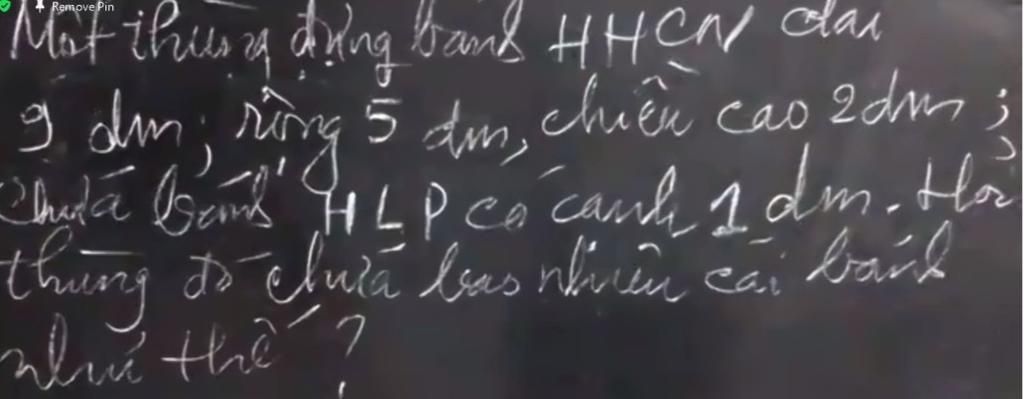 Remove Pin
Một thùng đựng bánh HHCN dài
9 dm; rộng 5 dm, chiều cao 2dm;
chứa bánh HLP có cạnh 1 dm. Hỏi
thùng đó chứa bao nhiêu cái bánh
như thế?